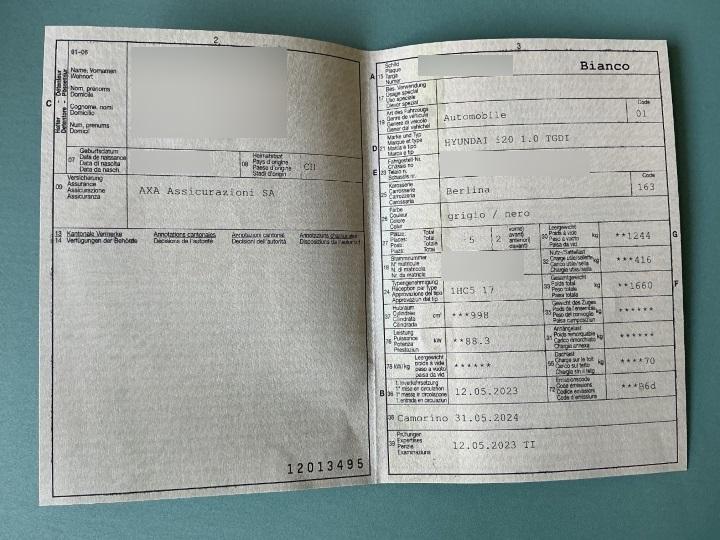 2
01-06
C
Halter - Détenteur
Detentore - Possessur
Name, Vornamen
Wohnort
Nom, prénoms
Domicile
Cognome, nomi
Domicilio
Num, prenums
Domicil
07
Geburtsdatum
Date de naissance
Data di nascita
Data da nascita
08
Heimatstaat
Pays d'origine
Paese d'origine
Stadi d'origin
CH
09
Versicherung
Assurance
Assicurazione
Assicuranza
AXA Assicurazioni SA
13 Kantonale Vermerke Annotations cantonales Annotazioni cantonali Annotaziuns chantunalas
14 Verfügungen der Behörde Décisions de l'autorité Decisioni dell'autorità Disposiziuns da l'autoritad
12013495
3
A 15
Schild
Plaque
Targa
Numer
Bianco
17
Bes. Verwendung
Usage spécial
Uso speciale
Diever spezial
19
Art des Fahrzeugs
Genre de véhicule
Genere di veicolo
Gener dal vehichel
Automobile
Code
01
D 21
Marke und Typ
Marque et type
Marca e tipo
Marca e tip
HYUNDAI i20 1.0 TGDI
E 23
Fahrgestell-Nr.
Châssis no
Telaio n.
Schassis nr.
25
Karosserie
Carrosserie
Carrozzeria
Carossaria
Berlina
Code
163
26
Farbe
Couleur
Colore
Colur
grigio / nero
27
Plätze: Total
Places: Total
Posti: Totale
Plazs: Total
5
2
vorne)
avant)
anteriori)
davant)
30
Leergewicht
Poids à vide
Peso a vuoto
Paisa da vid
kg
**1244
G
18
Stammnummer
N° matricule
N. di matricola
Nr. da matricla
32
Nutz-/Sattellast
Charge utile/sellette
Carico utile/sella
Chargia utila/sella
kg
***416
24
Typengenehmigung
Réception par type
Approvazione del tipo
Approvaziun dal tip
1HC5 17
33
Gesamtgewicht
Poids total
Peso totale
Paisa totala
kg
**1660
F
37
Hubraum
Cylindrée
Cilindrata
Cilindrada
cm³
***998
35
Gewicht des Zuges
Poids de l'ensemble
Peso del convoglio
Paisa cumposiziun
kg
******
76
Leistung
Puissance
Potenza
Prestaziun
kW
**88.3
31
Anhängelast
Poids remorquable
Carico rimorchiato
Chargia annexa
kg
******
78 kW/kg
Leergewicht
poids à vide
peso a vuoto
paisa da vid
******
55
Dachlast
Charge sur le toit
Carico sul tetto
Chargia sin il tetg
kg
****70
B 36
1. Inverkehrsetzung
1re mise en circulation
1a messa in circolazione
1. entrada en circulaziun
12.05.2023
72
Emissionscode
Code émissions
Codice emissioni
Code d'emissiuns
***B6d
38 Camorino 31.05.2024
39
Prüfungen
Expertises
Perizie
Examinaziuns
12.05.2023 TI